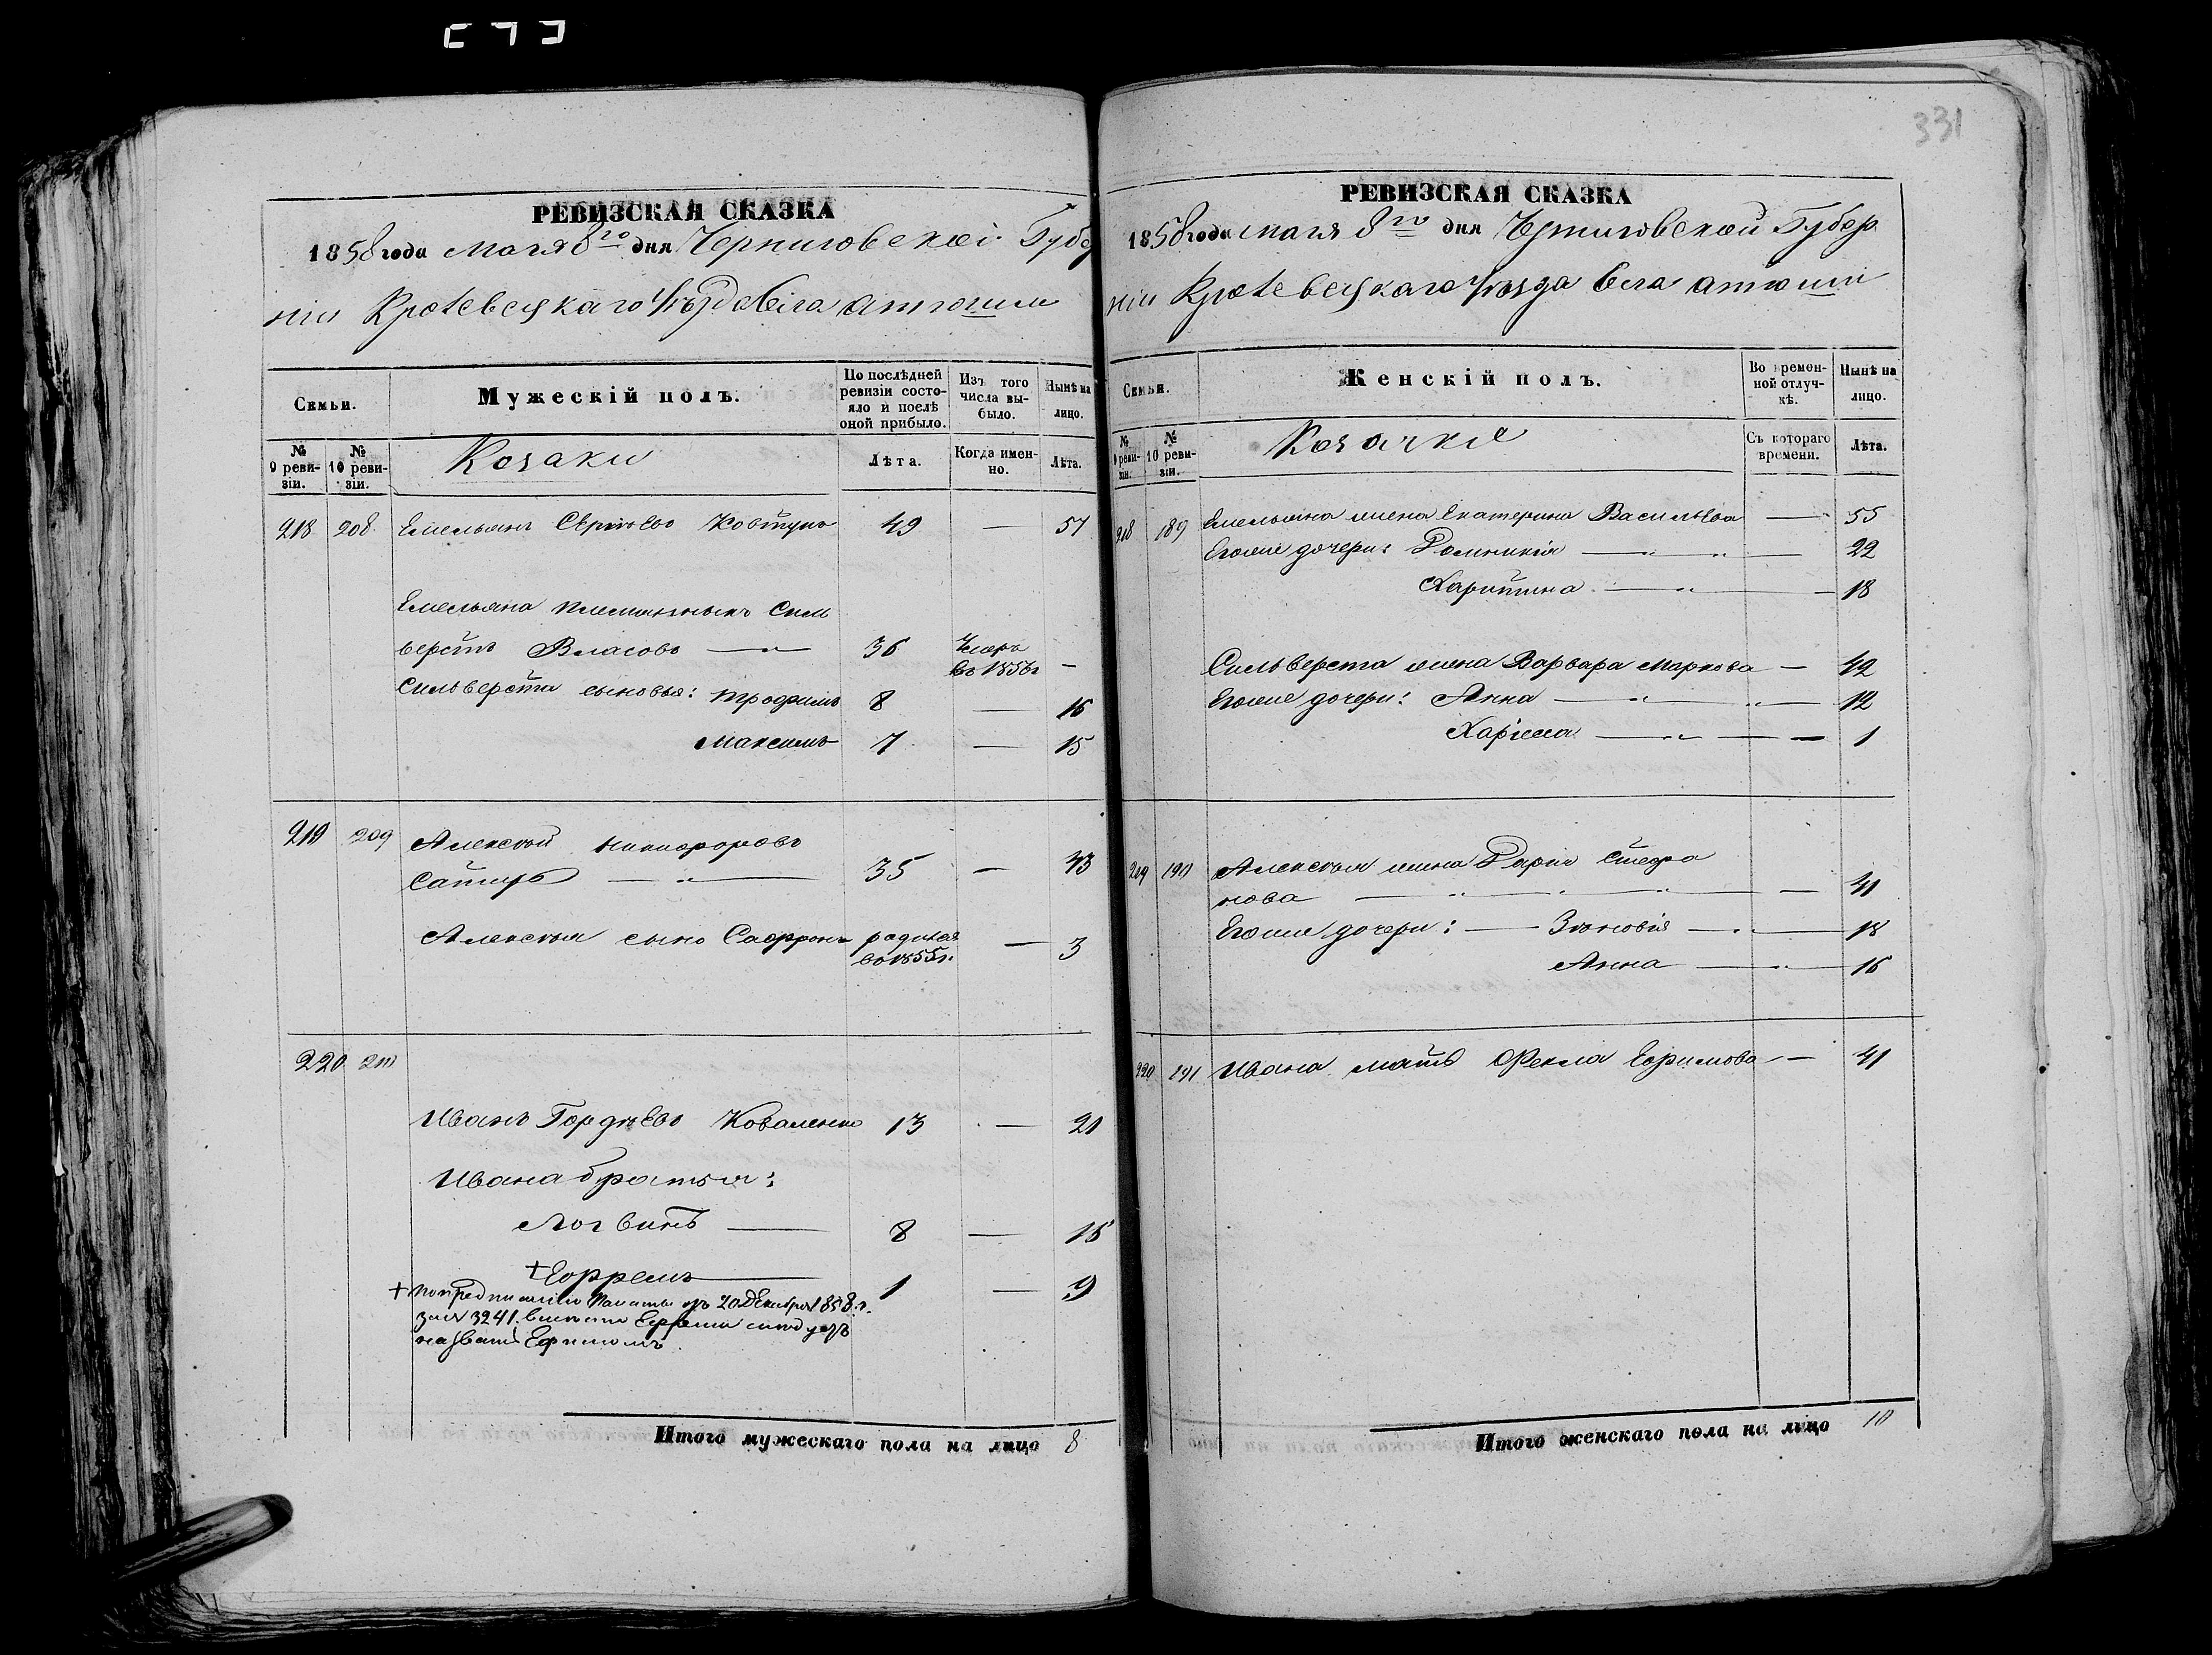 331
РЕВИЗСКАЯ СКАЗКА
1858 года маія 8го дня Черниговской Губер
ніи Кролевецкаго уѣзда села Атюши
Семьи.
Мужескій полъ.
По послѣдней ревизіи состояло и послѣ оной прибыло.
Изъ того числа выбыло.
Нынѣ на лицо.
№ 9 ревизіи.
№ 10 ревизіи.
Козаки
Лѣта.
Когда именно.
Лѣта.
218 208 Емельянъ Сергѣевъ Ковтунъ 49 — 57
Емельяна племянникъ Силь
верстъ Власовъ — 36 Умеръ въ 1856г —
Сильверста сыновья: Трофимъ 8 — 16
Максимъ 7 — 15
219 209 Алексѣй Никифоровъ
Сатиръ — 35 — 43
Алексѣя сынъ Сафронъ родился въ 1855г. — 3
220 210
Иванъ Гордѣевъ Коваленко 13 — 21
Ивана братья:
Логвинъ — 8 — 16
+ Ефремъ — 1 — 9
+ По предписанію Палаты отъ 20 Декабря 1858 г.
за № 3241. вмѣсто Ефрема слѣдуетъ
назвать Ефимомъ.
Итого мужескаго пола на лицо 8
РЕВИЗСКАЯ СКАЗКА
1858 года маія 8го дня Черниговской Губер
ніи Кролевецкаго уѣзда села Атюши
Семьи.
Женскій полъ.
Во временной отлучкѣ.
Нынѣ на лицо.
№ 9 ревизіи.
№ 10 ревизіи.
Козачки
Съ котораго времени.
Лѣта.
218 189 Емельяна жена Екатерина Васильева — 55
Егоже дочери: Домникія — 22
Харитина — 18
Сильверста жена Варвара Маркова — 42
Егоже дочери: Анна — 12
Харіеса — 1
219 190 Алексѣя жена Дарія Стефа
нова — 41
Егоже дочери: — Зѣновія — 18
Анна — 16
220 191 Ивана мать Фекла Ефимова — 41
Итого женскаго пола на лицо 10